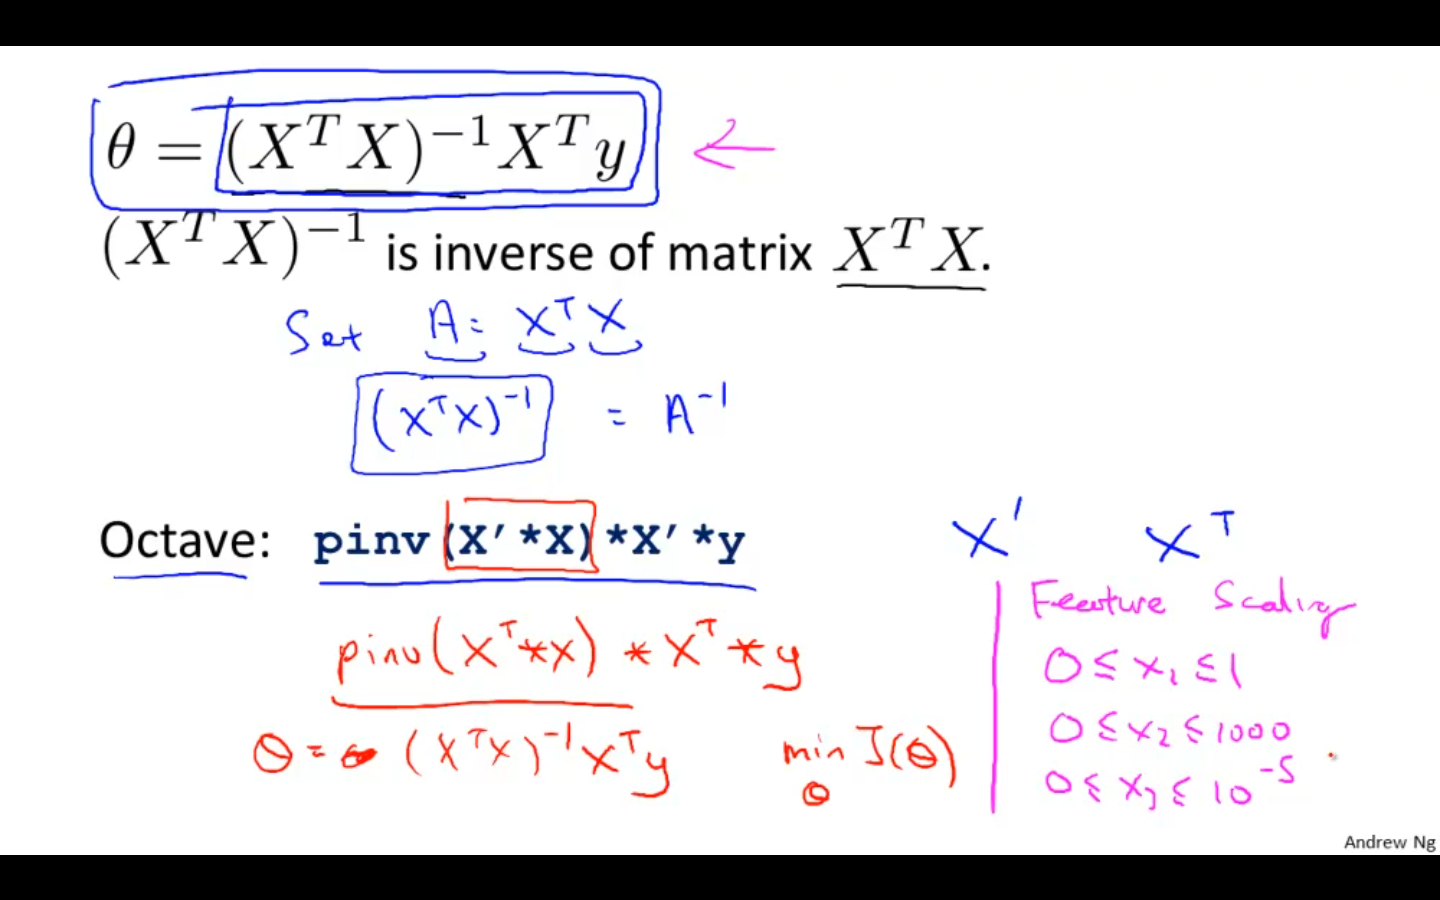 θ = (X^T X)^{-1} X^T y
(X^T X)^{-1} is inverse of matrix X^T X.
Set A = X^T X
(X^T X)^{-1} = A^{-1}
Octave: pinv(X'*X)*X'*y
X' X^T
pinv(X^T*X)*X^T*y
θ = (X^T X)^{-1} X^T y
min J(θ)
θ
Feature Scaling
0 ≤ x₁ ≤ 1
0 ≤ x₂ ≤ 1000
0 ≤ x₃ ≤ 10^{-5}
Andrew Ng